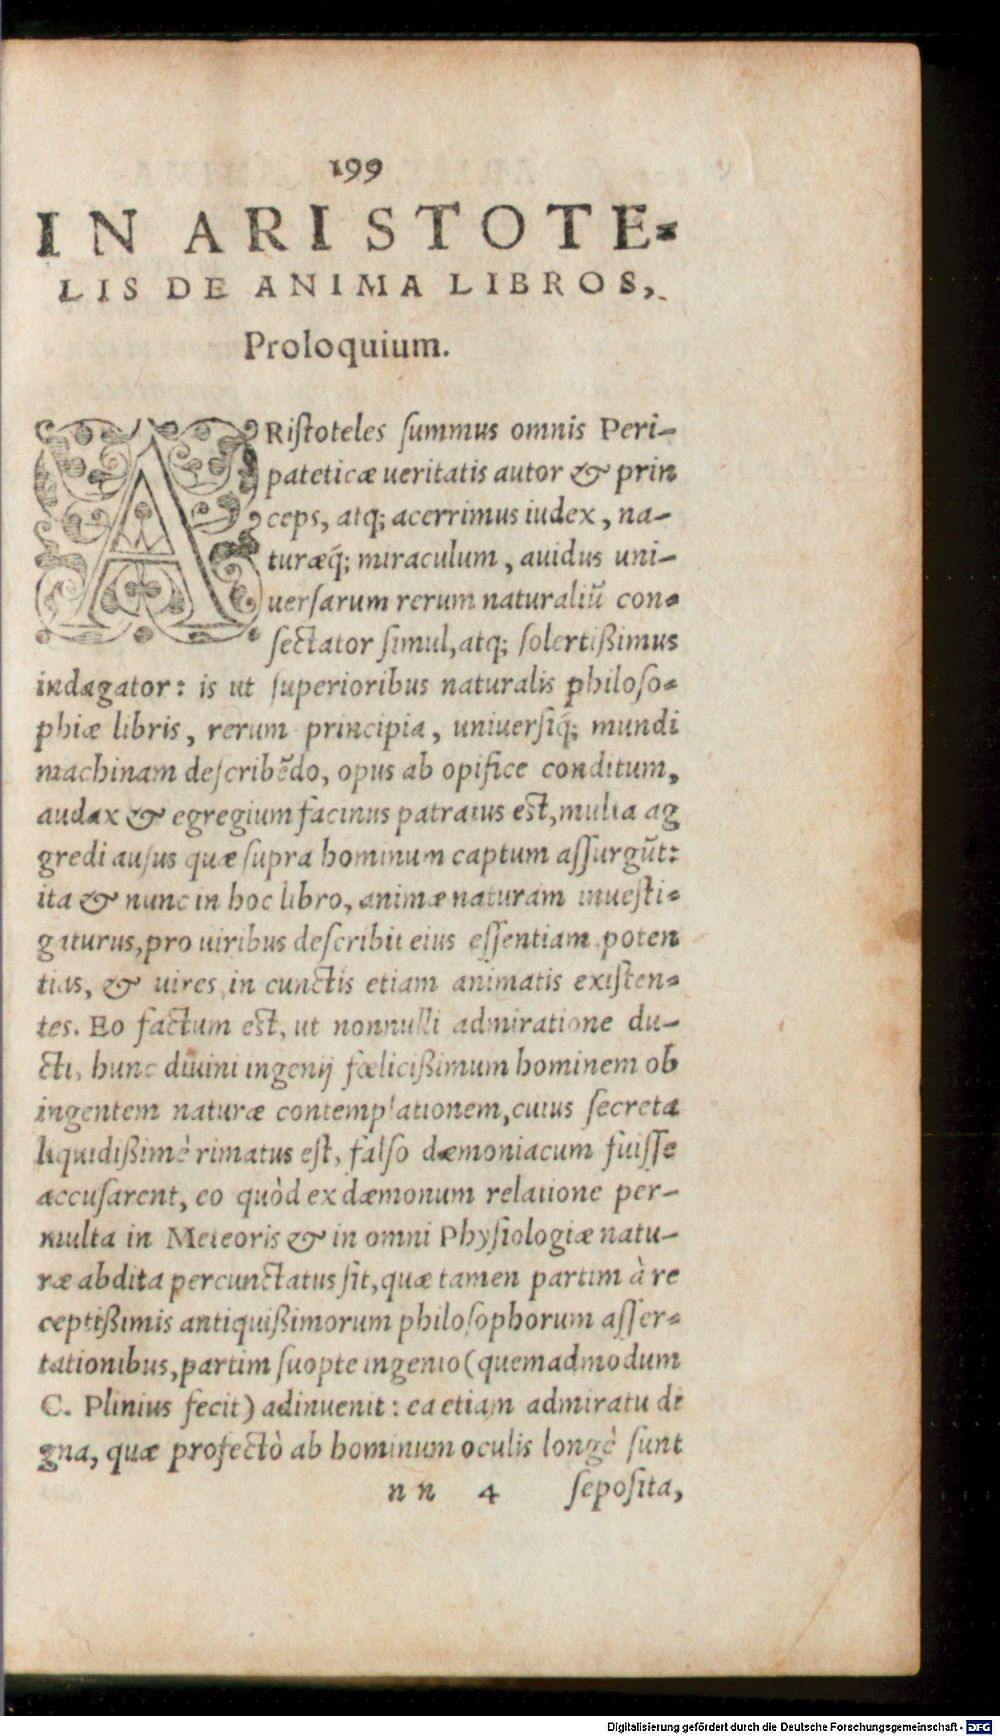 199
IN ARISTOTE-
LIS DE ANIMA LIBROS,
Proloquium.
ARiſtoteles ſummus omnis Peri-
pateticæ ueritatis autor & prin
ceps, atq; acerrimus iudex, na-
turæq́; miraculum, auidus uni-
uerſarum rerum naturaliũ con-
ſectator ſimul, atq; ſolertißimus
indagator: is ut ſuperioribus naturalis philoſo-
phiæ libris, rerum principia, uniuerſiq́; mundi
machinam deſcribẽdo, opus ab opifice conditum,
audax & egregium facinus patratus eſt, multa ag
gredi auſus quæ ſupra hominum captum aſſurgũt:
ita & nunc in hoc libro, animæ naturam inueſti-
gaturus, pro uiribus deſcribit eius eſſentiam poten
tias, & uires in cunctis etiam animatis exiſten-
tes. Eo factum eſt, ut nonnulli admiratione du-
cti, hunc diuini ingenij fœlicißimum hominem ob
ingentem naturæ contemplationem, cuius ſecreta
liquidißimè rimatus eſt, falſo dæmoniacum fuiſſe
accuſarent, eo quòd ex dæmonum relatione per-
multa in Meteoris & in omni Phyſiologiæ natu-
ræ abdita percunctatus ſit, quæ tamen partim à re
ceptißimis antiquißimorum philoſophorum aſſer-
tationibus, partim ſuopte ingenio (quemadmodum
C. Plinius fecit) adinuenit: ea etiam admiratu di
gna, quæ profectò ab hominum oculis longè ſunt
nn 4 ſepoſita,
Digitalisierung gefördert durch die Deutsche Forschungsgemeinschaft - DFG